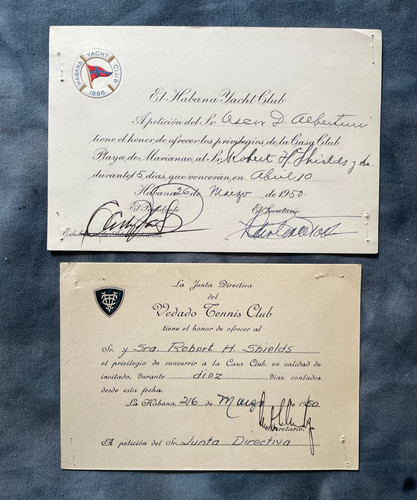 HABANA YACHT CLUB
1886
El Habana Yacht Club
A petición del Sr. Oscar D. Albertini
tiene el honor de ofrecer los privilegios de la Casa Club
Playa de Marianao, al Sr. Robert H. Shields y Sra.
durante 15 días, que vencerán, en Abril 10
Habana 26 de Marzo de 1950.
El Presidente El Secretario
La Junta Directiva
del
Vedado Tennis Club
tiene el honor de ofrecer al
Sr. y Sra. Robert H. Shields
el privilegio de concurrir a la Casa Club, en calidad de
invitado, durante diez días contados
desde esta fecha.
La Habana, 26 de Marzo 1950
Secretario.
A petición del Sr. Junta Directiva